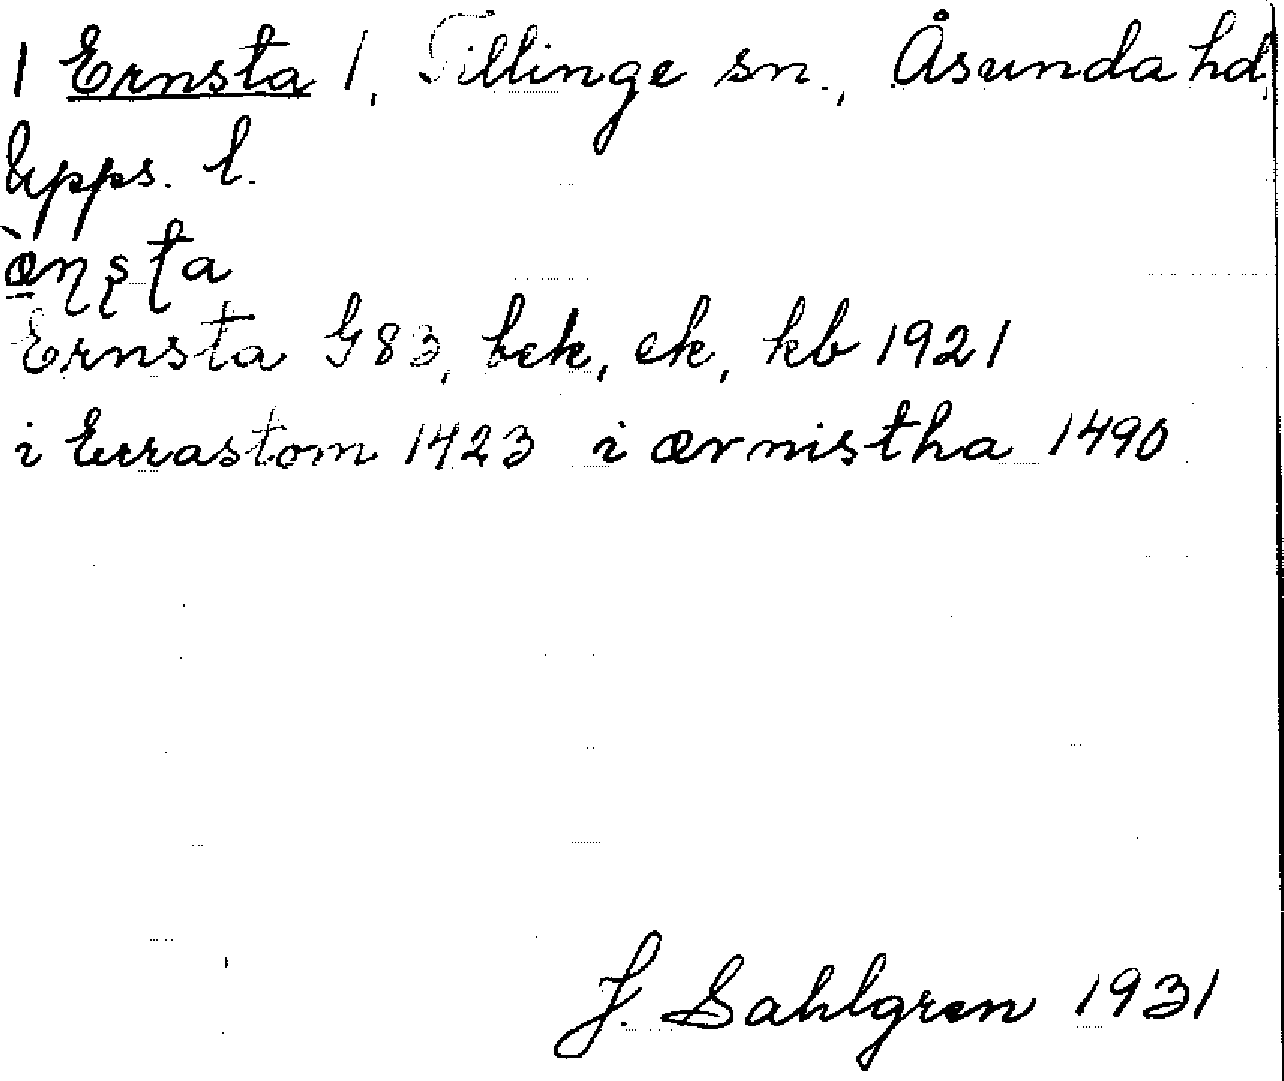 1 Ernsta 1, Tillinge sn., Åsunda hd,
Upps. l.
æ̀ɳʂʈa
Ernsta G83, bek, ek, kb 1921
i Errastom 1423 i ærnistha 1490
J. Sahlgren 1931